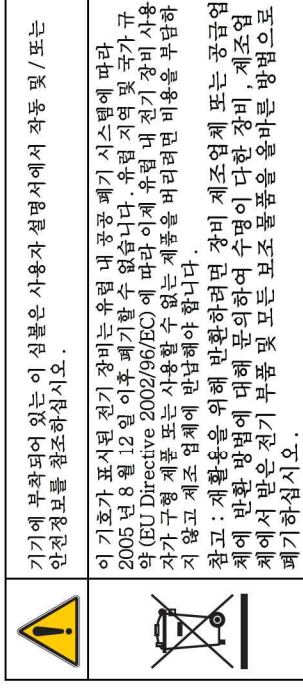 기기에 부착되어 있는 이 심볼은 사용자 설명서에서 작동 및 / 또는
안전정보를 참조하십시오 .
이 기호가 표시된 전기 장비는 유럽 내 공공 폐기 시스템에 따라
2005 년 8 월 12 일 이후 폐기할 수 없습니다 . 유럽 지역 및 국가 규
약 (EU Directive 2002/96/EC) 에 따라 이제 유럽 내 전기 장비 사용
자가 구형 제품 또는 사용할 수 없는 제품을 버리려면 비용을 부담하
지 않고 제조 업체에 반납해야 합니다 .
참고 : 재활용을 위해 반환하려면 장비 제조업체 또는 공급업
체에 반환 방법에 대해 문의하여 수명이 다한 장비 , 제조업
체에서 받은 전기 부품 및 모든 보조 물품을 올바른 방법으로
폐기하십시오 .